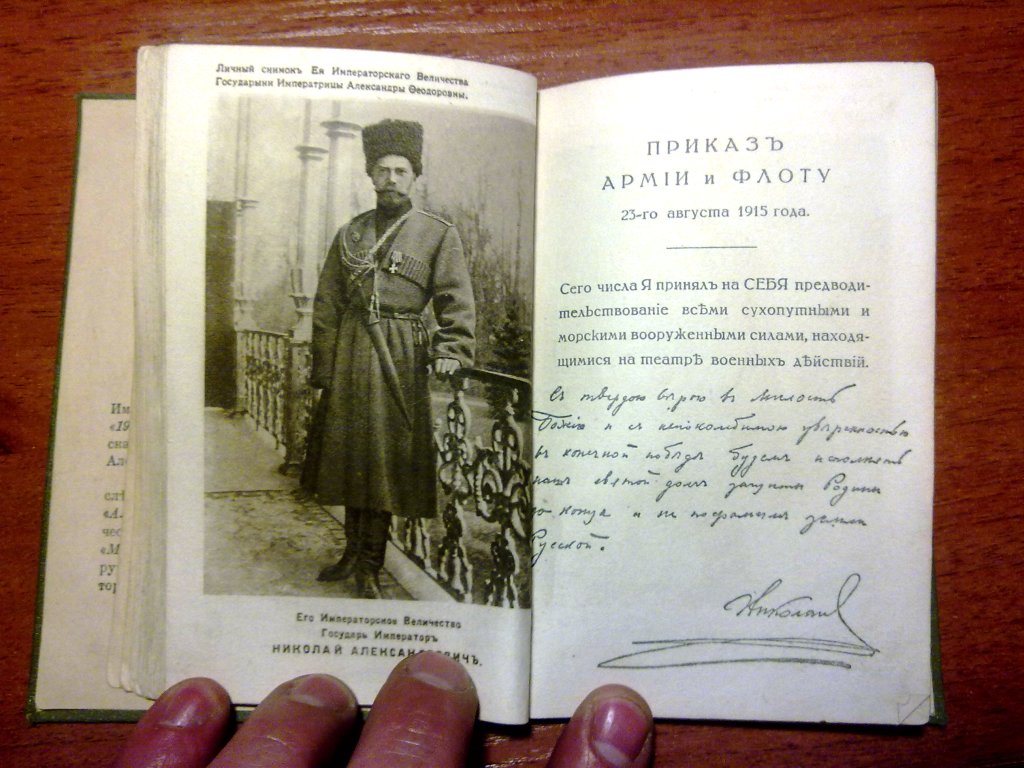 Личный снимокъ Ея Императорскаго Величества
Государыни Императрицы Александры Ѳеодоровны.
Его Императорское Величество
Государь Императоръ
НИКОЛАЙ
ПРИКАЗЪ
АРМІИ и ФЛОТУ
23-го августа 1915 года.
Сего числа Я принялъ на СЕБЯ предводи-
тельствованіе всѣми сухопутными и
морскими вооруженными силами, находя-
щимися на театрѣ военныхъ дѣйствій.
Съ твердою вѣрою въ милость
Божію и съ непоколебимою увѣренностью
въ конечной побѣдѣ будемъ исполнять
нашъ святой долгъ защиты Родины
до конца и не посрамимъ земли
Русской.
Николай